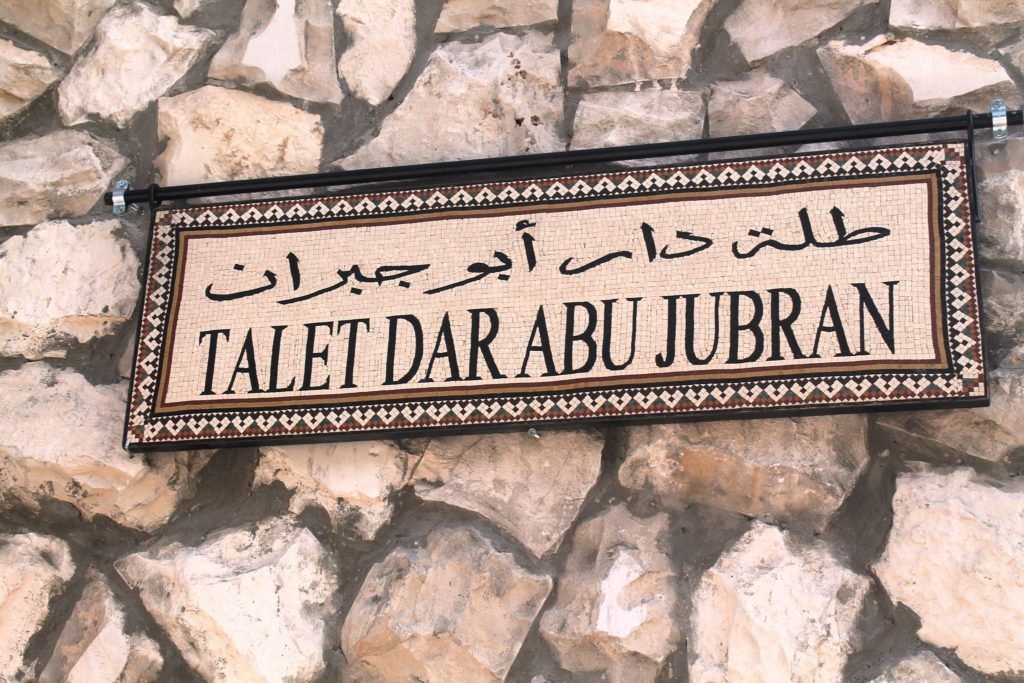 طلة دار أبو جبران
TALET DAR ABU JUBRAN